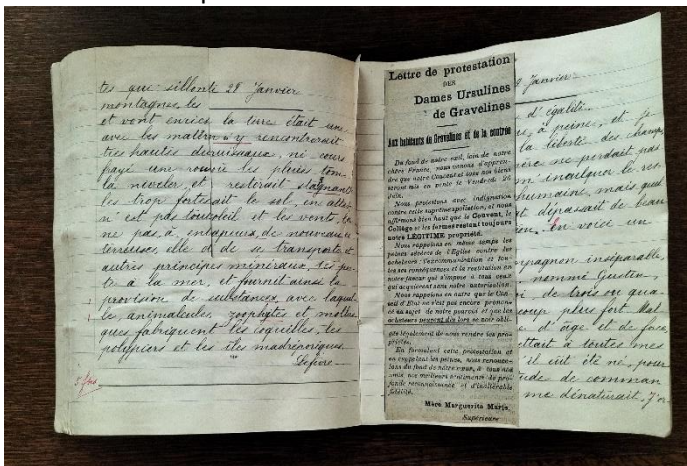 tes qui sillonte 28 Janvier
montagnes les
et vont enrich la terre était un
avec les matièr n'y rencontrerait
très hautes de ruisseaux, ni cours
la niveler et resterait stagnant
les trop fortes ait le sol, en atten
n'est pas tout soleil et les vents, la
ne pas, à en vapeurs, de nouveau e
terreuses, elle d de se transporte
autres principes minéraux, les po
te à la mer, et fournit ainsi la
provision de substances avec laquel
le, animalcules, zoophytes et mollus
ques fabriquent les coquilles, les
polypiers et les îles madréporiques.
Lefèvre
Lettre de protestation
DES
Dames Ursulines
de Gravelines
Aux habitants de Gravelines et de la contrée
Du fond de notre exil, loin de notre
chère France, nous venons d'appren-
dre que notre Couvent et tous nos biens
seront mis en vente le Vendredi 26
Juin.
Nous protestons avec indignation
contre cette suprême spoliation, et nous
affirmons bien haut que le Couvent, le
Collège et les fermes restent toujours
notre LÉGITIME propriété.
Nous rappelons en même temps les
peines sévères de l'Église contre les
acheteurs : l'excommunication et tou-
tes ses conséquences et la restitution en
notre faveur qui s'impose à tous ceux
qui acquièrent sans notre autorisation.
Nous rappelons en outre que le Con-
seil d'État ne s'est pas encore pronon-
cé au sujet de notre pourvoi et que les
acheteurs peuvent dès lors se voir obli-
gés légalement de nous rendre nos pro-
priétés.
En formulant cette protestation et
en rappelant les peines, nous renouve-
lons du fond de notre cœur, à tous nos
amis nos meilleurs sentiments de pro-
fonde reconnaissance et d'inaltérable
fidélité.
Mère Marguerite Marie,
Supérieure
Janvier
d'égalité
à peine, et je
la liberté des champs
ne perdait pas
m'inculquer le res
humaine, mais quel
dépassait de beau
En voici un
compagnon inséparable,
nommé Gustin,
de trois ou qua
coup plus fort. Mal
d'âge et de force,
ettait à toutes mes
il eut été né, pour
de comman
me dénaturait. J'or